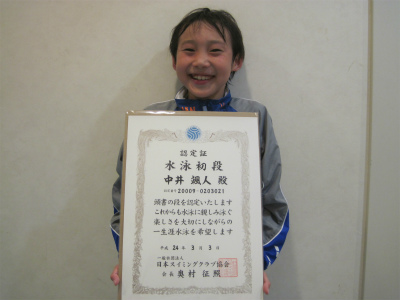 認定証
水泳初段
中井 颯人 殿
20009-0203021
頭書の段を認定いたします
これからも水泳に親しみ泳ぐ
楽しさを大切にしながらの
一生涯水泳を希望します
平成 24年 3月 3日
一般社団法人
日本スイミングクラブ協会
会長 奥村 征照